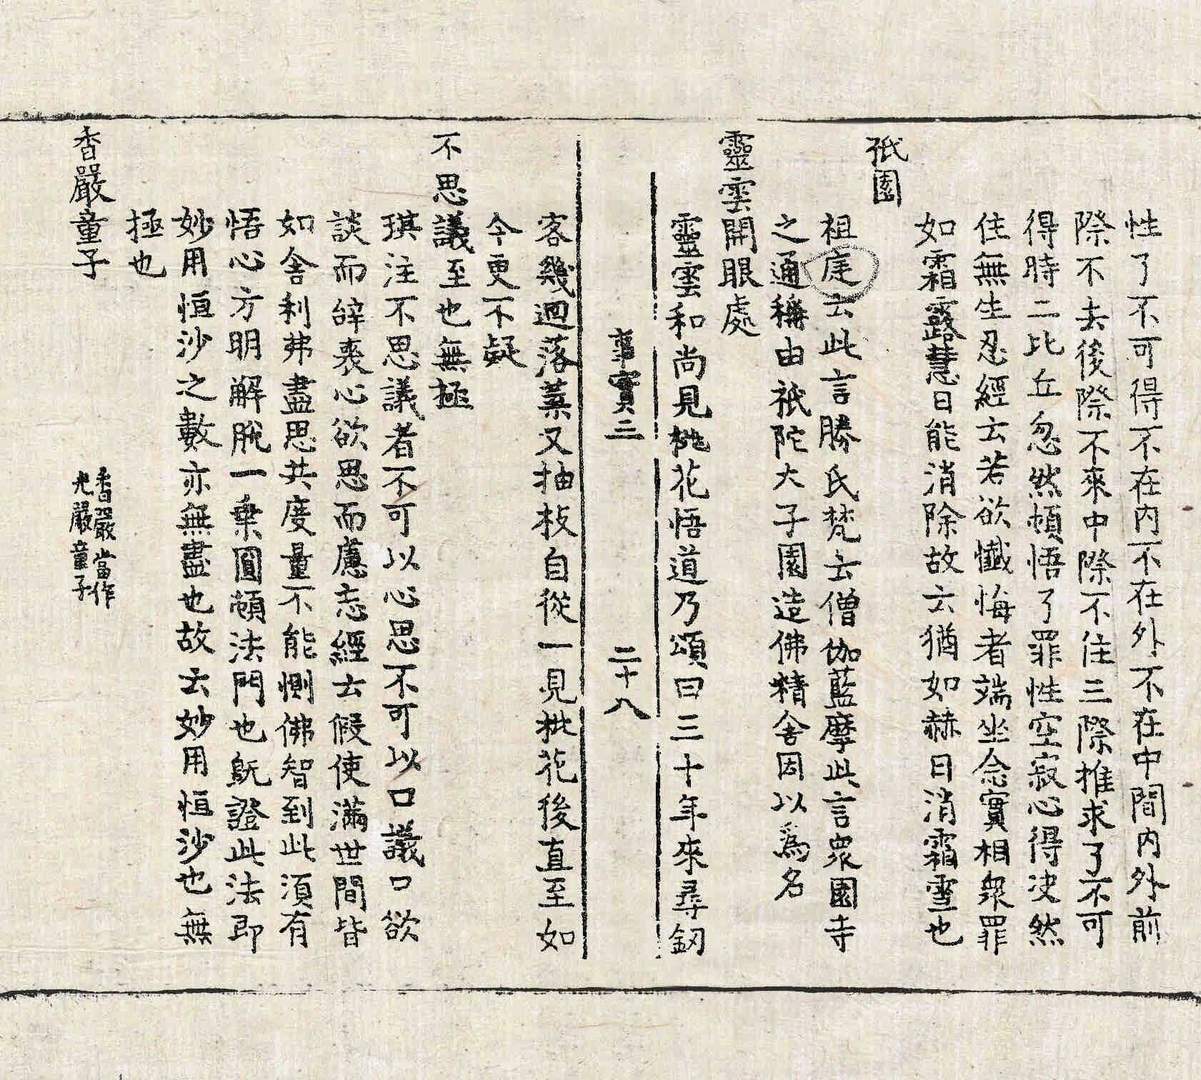 性了不可得不在内不在外不在中間内外前
際不去後際不來中際不住三際推求了不可
得時二比丘忽然頓悟了罪性空寂心得决然
住無生忍經云若欲懺悔者端坐念實相衆罪
如霜露慧日能消除故云猶如赫日消霜雪也
祇園
祖庭云此言勝氏梵云僧伽藍摩此言衆園寺
之通稱由祇陀大子園造佛精舍因以爲名
靈雲開眼處
靈雲和尚見桃花悟道乃頌曰三十年來尋釰
事實三 二十八
客幾迴落葉又抽枝自從一見桃花後直至如
今更不疑
不思議至也無極
琪注不思議者不可以心思不可以口議口欲
談而辝喪心欲思而慮忘經云假使滿世間皆
如舍利弗盡思共度量不能惻佛智到此湏有
悟心方明解脫一乗圓頓法門也旣證此法即
妙用恒沙之數亦無盡也故云妙用恒沙也無
極也
香嚴童子
香嚴當作
光嚴童子